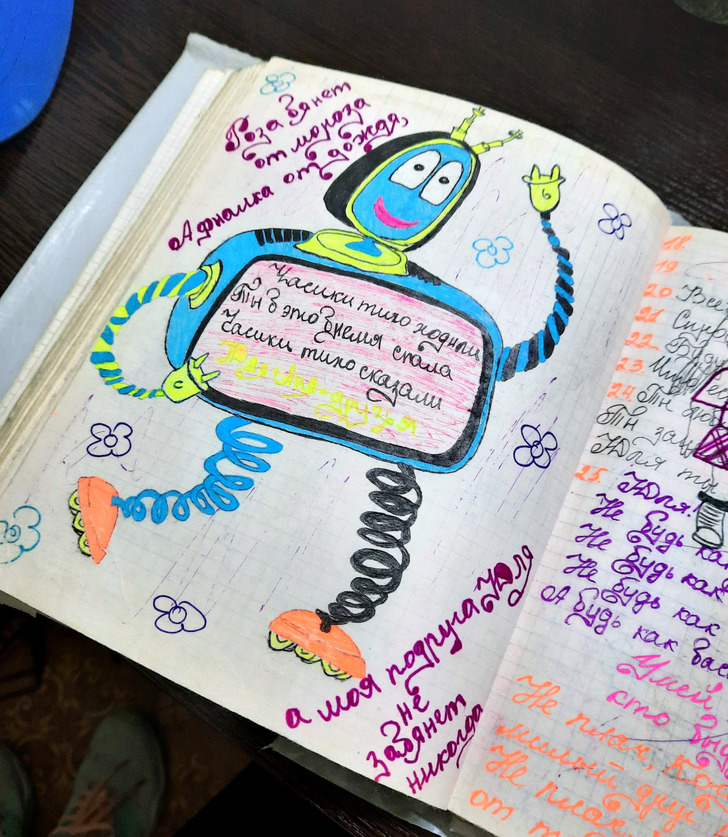 Роза вянет
от мороза
А фиалка от дождя,
Часики тихо ходили
Ты в это время спала
Часики тихо сказали
Юля+Аня=друзья
а моя подруга Юля
не
завянет
никогда
18
19
20
21
22
23
24. Ты
Ты
Юля ты
25. Юля!
Не будь как
Не будь как
Не будь как
А будь как
Умей
кто
Не плач,
милый друг
Не плач
от